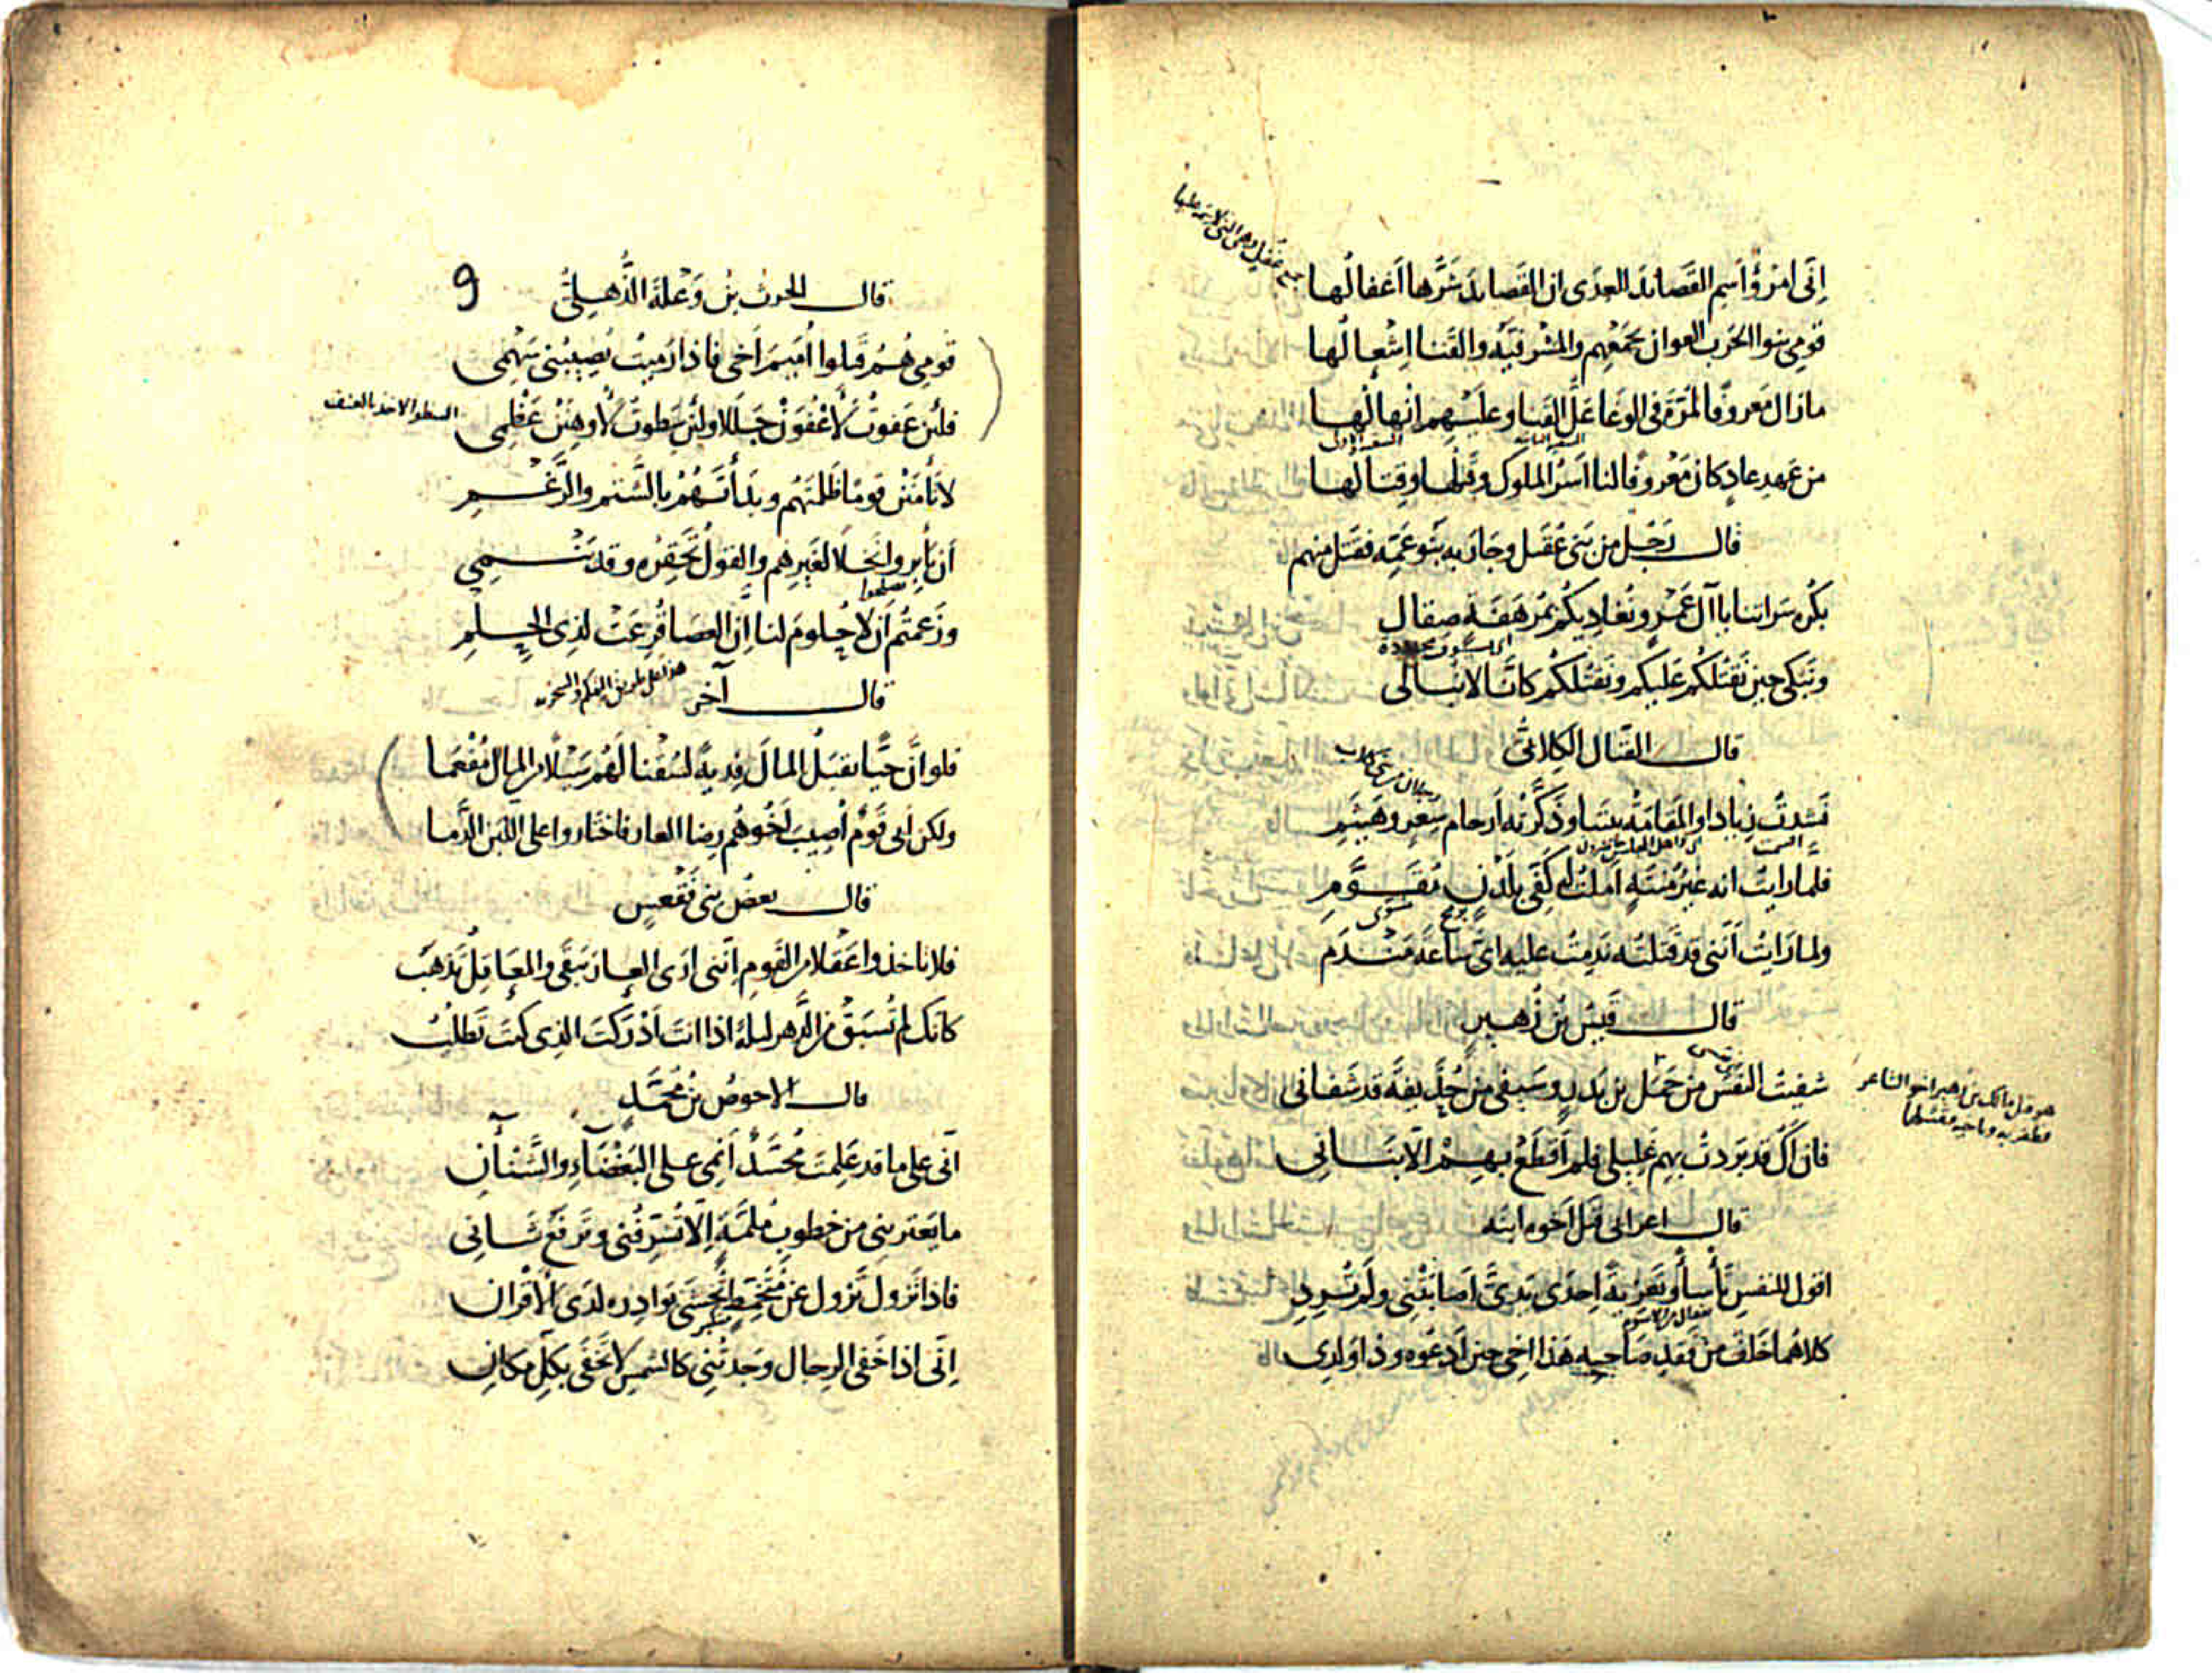 جمع غفل وهي التي لا سمة عليها
اِنّى امرُؤٌ اَسِم القَصائدَ للعِدَى ان القَصايدَ شَرُّها اَغفالُها
قومى بنوا الحَرب العوان بجَمْعِهم والمَشْرفيّة والقَنا اِشْعالُها
مازال مَعروفًا لمُرّةَ فى الوغا عَلُّ القنا وعليهم اِنْهالُها
السقى الثانية السقى الاول
من عَهدِ عادٍ كان مَعْروفًا لنا اَسْرُ الملوك وقَتلها وقِتالُها
قال رَجُل من بَنى عُقَيل وحارَبه بَنو عَمّه فقتل منهم
بكُره سَراتنا يا آلَ عَمْرٍو نُغادِيكُم بمُرهَفَة صِقالِ
ونَبكى حين نَقتُلكُم عَليكم ونَقتُلكُم كاَنّا لا نُبالى
قال القَتّال الكِلابىّ
رجلان من بنى كلاب
نَشدتُ زِيادا والمَقامَةُ بينَنا وذكَّرْتُه اَرحام سِعرٍ وهَيثَمِ
فلما رايتُ انه غيرُ مُنتَهٍ اَمَلتُ له كَفّى بلَدْنٍ مُقَوَّمِ
رمح مسوى
ولما رَايتُ اَنّنى قد قَتَلتُه نَدِمتُ عليه اىَّ ساعَةِ مَنْدَمِ
قال قَيسُ بنُ زُهَيرٍ
شفيتُ النَفْسَ من حَمَل بن بَدرٍ وسَيفى من حُذَيفَة قد شَفانى
هو قتل مالك بن زهير اخو الشاعر
فظفر به وباخيه فقتلهما
فان اَكُ قد بَرَدتُ بهم غَليلى فلم اَقطَعْ بهم اِلّا بَنانى
قال اعرابى قتل اَخوه ابنه
اقول للنفسِ تَأسأً وتَعزيَةً اِحدَى يَدَىَّ اَصابَتْنى ولَم تُرِدِ
كلاهُما خَلَفٌ من فَقدِ صَاحِبه هَذا اخى حين اَدعُوه وذا وَلدِى
قال
قال الحرث بنُ وَعْلَةَ الذُّهلىّ
9
قومى هُمُ قَتَلوا اُمَيمَ اَخى فاذا رَميتُ يُصيبُنى سَهْمى
فلئن عَفوتُ لاَعْفُوَنْ جَلَلا ولئن سَطوتُ لاُوهِنَنْ عَظْمى
السطو الاخذ بالعنف
لا تَأمَنَنْ قومًا ظَلمتَهُم وبدَأتَهُم بالشَتمِ والرَغْمِ
اَن يَأبِروا نَخلًا لغَيرِهِم والقَولُ تَحقِرُه وقد يَنْمِى
يصلحوا
وزَعمتُم اَن لا حُلومَ لنا اِنّ العصَا قُرِعَتْ لذِى الحِلمِ
هذا على طريق التهكم والسخرية
قال آخر
فلو اَنّ حَيّا يقبَلُ المالَ فِديةً لسُقْنا لَهُم سَيْلًا من المال مُفْعَما
ولكن اَبى قَومٌ اُصِيبَ اَخُوهُم رِضا العار فاختاروا على اللّبَن الدَّما
قال بعضُ بنى فَقْعَسٍ
فلا تاخذوا عَقْلا من القَومِ اِنّنى اَرَى العارَ يَبقَى والمَعاقِلُ تَذهَبُ
كانك لم تُسبَقْ من الدَهر ليلةً اذا انتَ اَدْرَكتَ الذى كنتَ تَطلبُ
قال الاحوصُ بنُ مُحَمَّدٍ
اِنّى على ما قد عَلِمتَ مُحَسَّدٌ اَنْمِى على البَغْضاءِ والشَنْآنِ
ما يَعترينى من خطوبِ مُلمَّةٍ اِلّا تُشَرِّفُنى وتَرفَعُ شَانى
فاذا تَزول تَزول عن مُتَخَمِّطٍ تُخشَى بَوادِرُه لدَى الاَقْران
متكبر
اِنّى اذا خَفى الرجال وجَدتَنى كالشمسِ لا تَخفَى بكلِّ مَكانِ